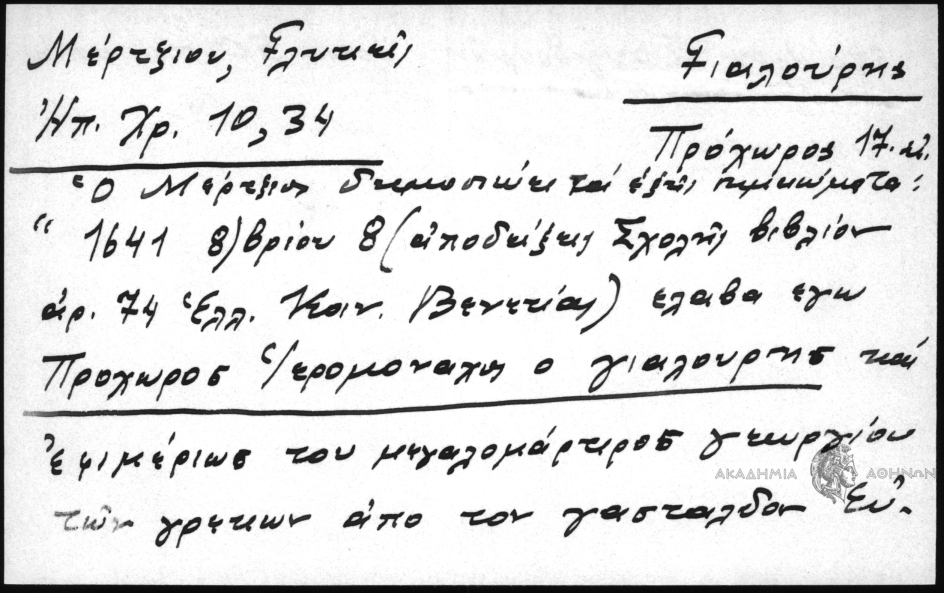 Μέρτζιου, Γλυκεῖς
Γιαλούρης
Ἠπ. Χρ. 10, 34
Πρόχωρος 17. αἰ.
Ὁ Μέρτζιος δημοσιεύει τά ἑξῆς σημειώματα:
“ 1641 8)βρίου 8 (ἀποδείξεις Σχολῆς βιβλίον
ἀρ. 74 Ἑλλ. Κοιν. Βενετίας) ελαβα εγω
Προχωροσ ἱερομοναχος ο γιαλουρησ καί
ἐφιμέριωσ του μεγαλομάρτυροσ γεωργίου
τῶν γρεκων ἀπο τον γασταλδον Εὐ-
ΑΚΑΔΗΜΙΑ ΑΘΗΝΩΝ